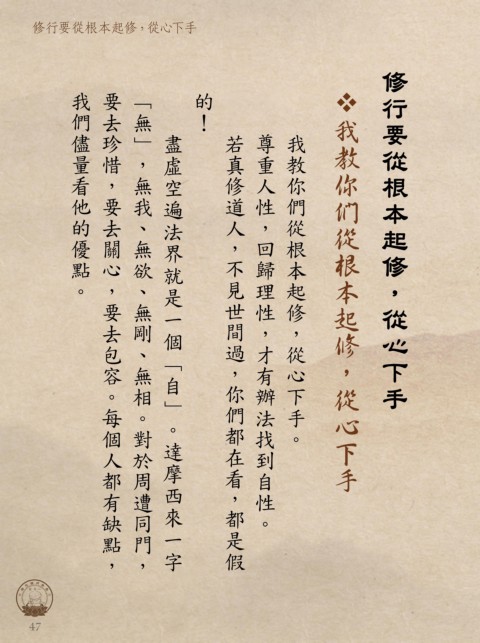 修行要從根本起修，從心下手
修行要從根本起修，從心下手
❖我教你們從根本起修，從心下手
我教你們從根本起修，從心下手。
尊重人性，回歸理性，才有辦法找到自性。
若真修道人，不見世間過，你們都在看，都是假
的！
盡虛空遍法界就是一個「自」。達摩西來一字
「無」，無我、無欲、無剛、無相。對於周遭同門，
要去珍惜，要去關心，要去包容。每個人都有缺點，
我們儘量看他的優點。
47